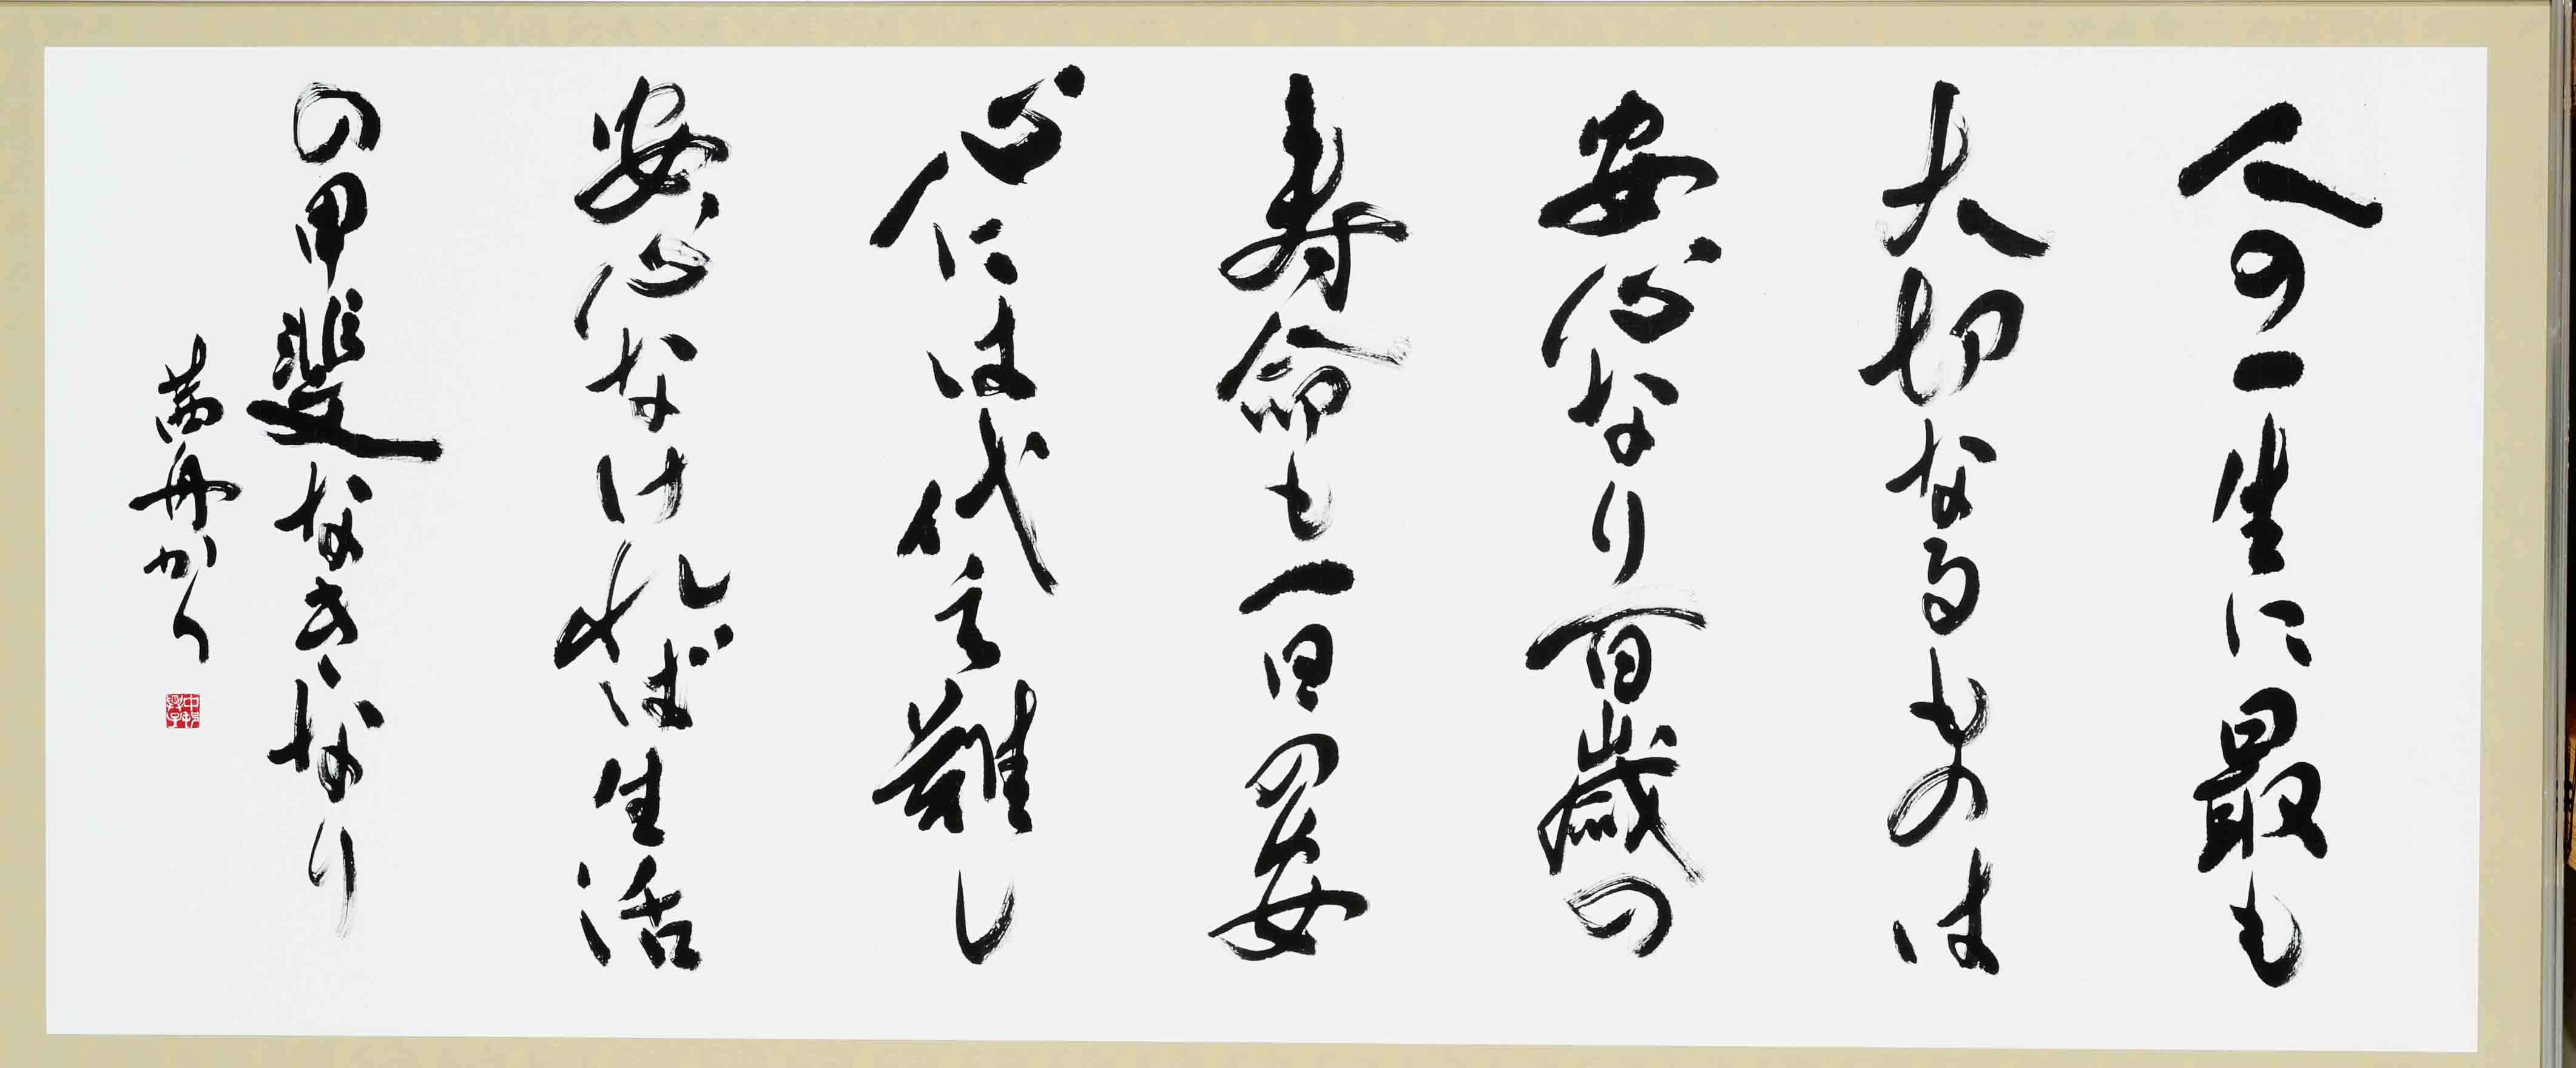 人の一生に最も
大切なるものは
安心なり百歳の
寿命も一日の安
心には代え難し
安心なければ生活
の甲斐なきなり
舟かく